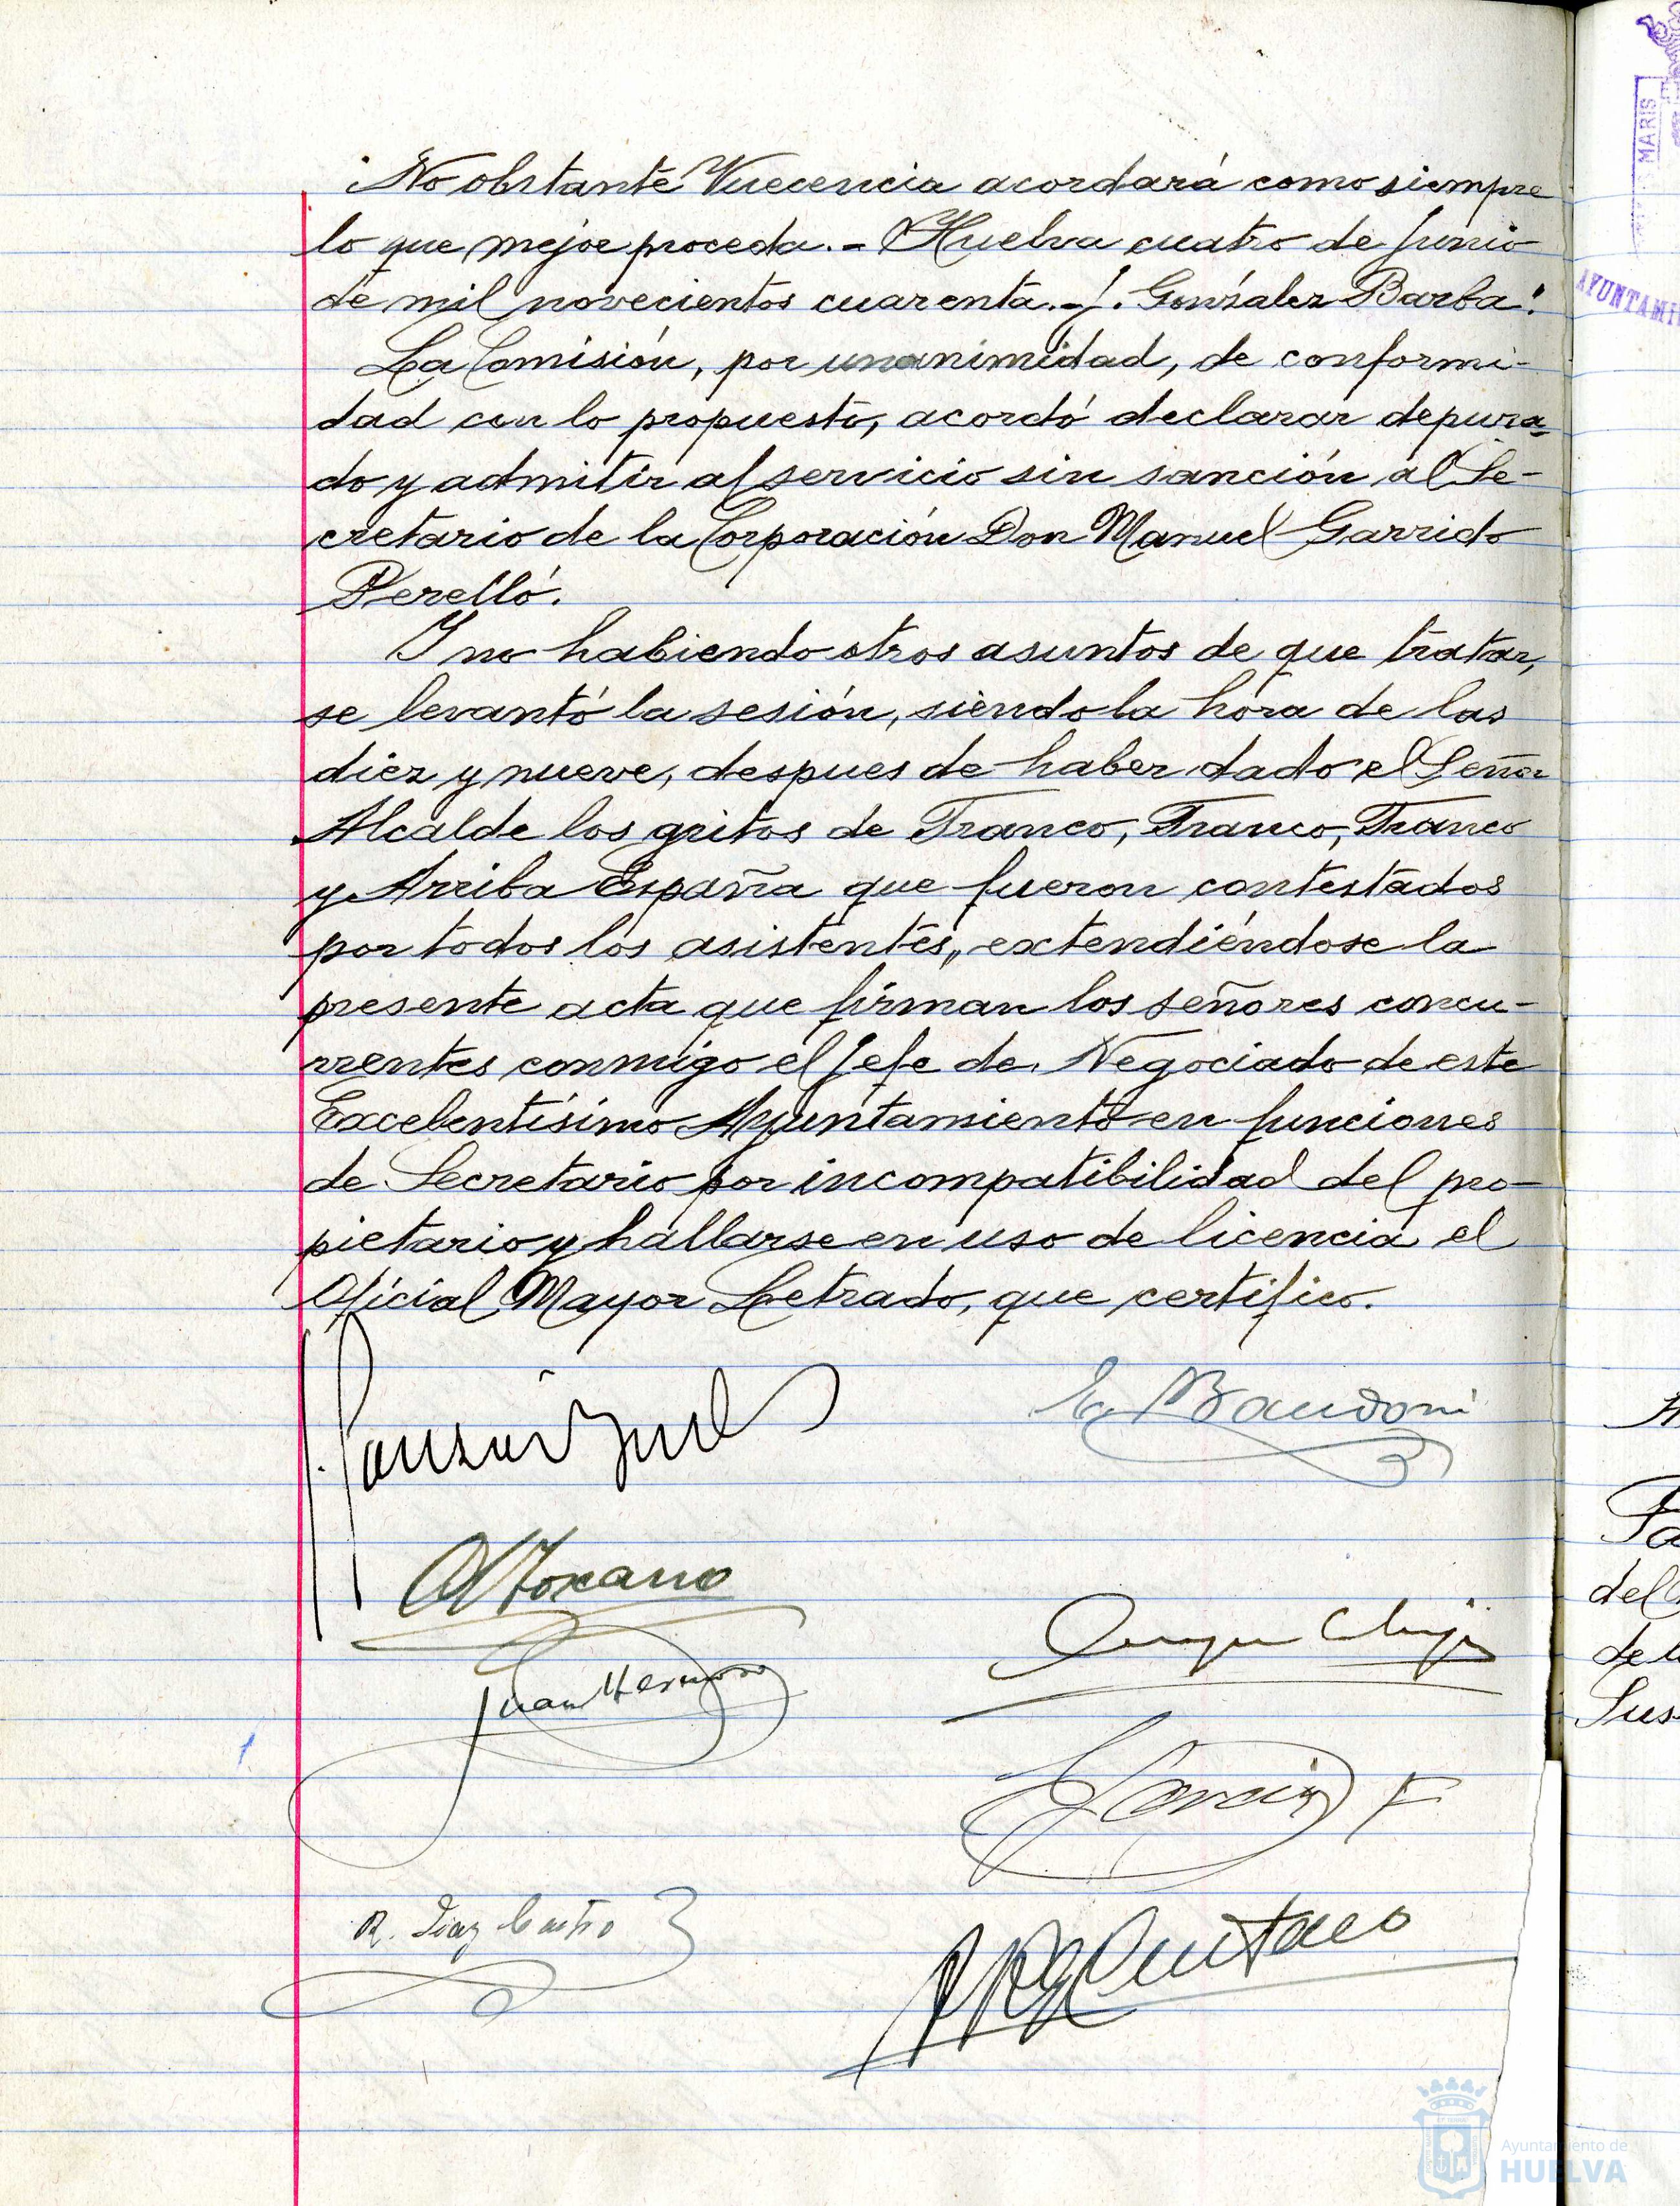 No obstante Vuecencia acordará como siempre
lo que mejor proceda.- Huelva cuatro de Junio
de mil novecientos cuarenta.- J. González Barba".
La Comisión, por unanimidad, de conformi-
dad con lo propuesto, acordó declarar depura-
do y admitir al servicio sin sanción al Se-
cretario de la Corporación Don Manuel Garrido
Perelló.
Y no habiendo otros asuntos de que tratar,
se levantó la sesión, siendo la hora de las
diez y nueve, despues de haber dado el Señor
Alcalde los gritos de Franco, Franco, Franco
y Arriba España que fueron contestados
por todos los asistentes, extendiéndose la
presente acta que firman los señores concu-
rrentes conmigo el Jefe de Negociado de este
Excelentísimo Ayuntamiento en funciones
de Secretario por incompatibilidad del pro-
pietario y hallarse en uso de licencia el
Oficial Mayor Letrado, que certifico.
E. Baudoni
Juan Hermoso
García F
R. Diaz Castro
MARIS
AYUNTAMI
del
Sus
Ayuntamiento de
HUELVA